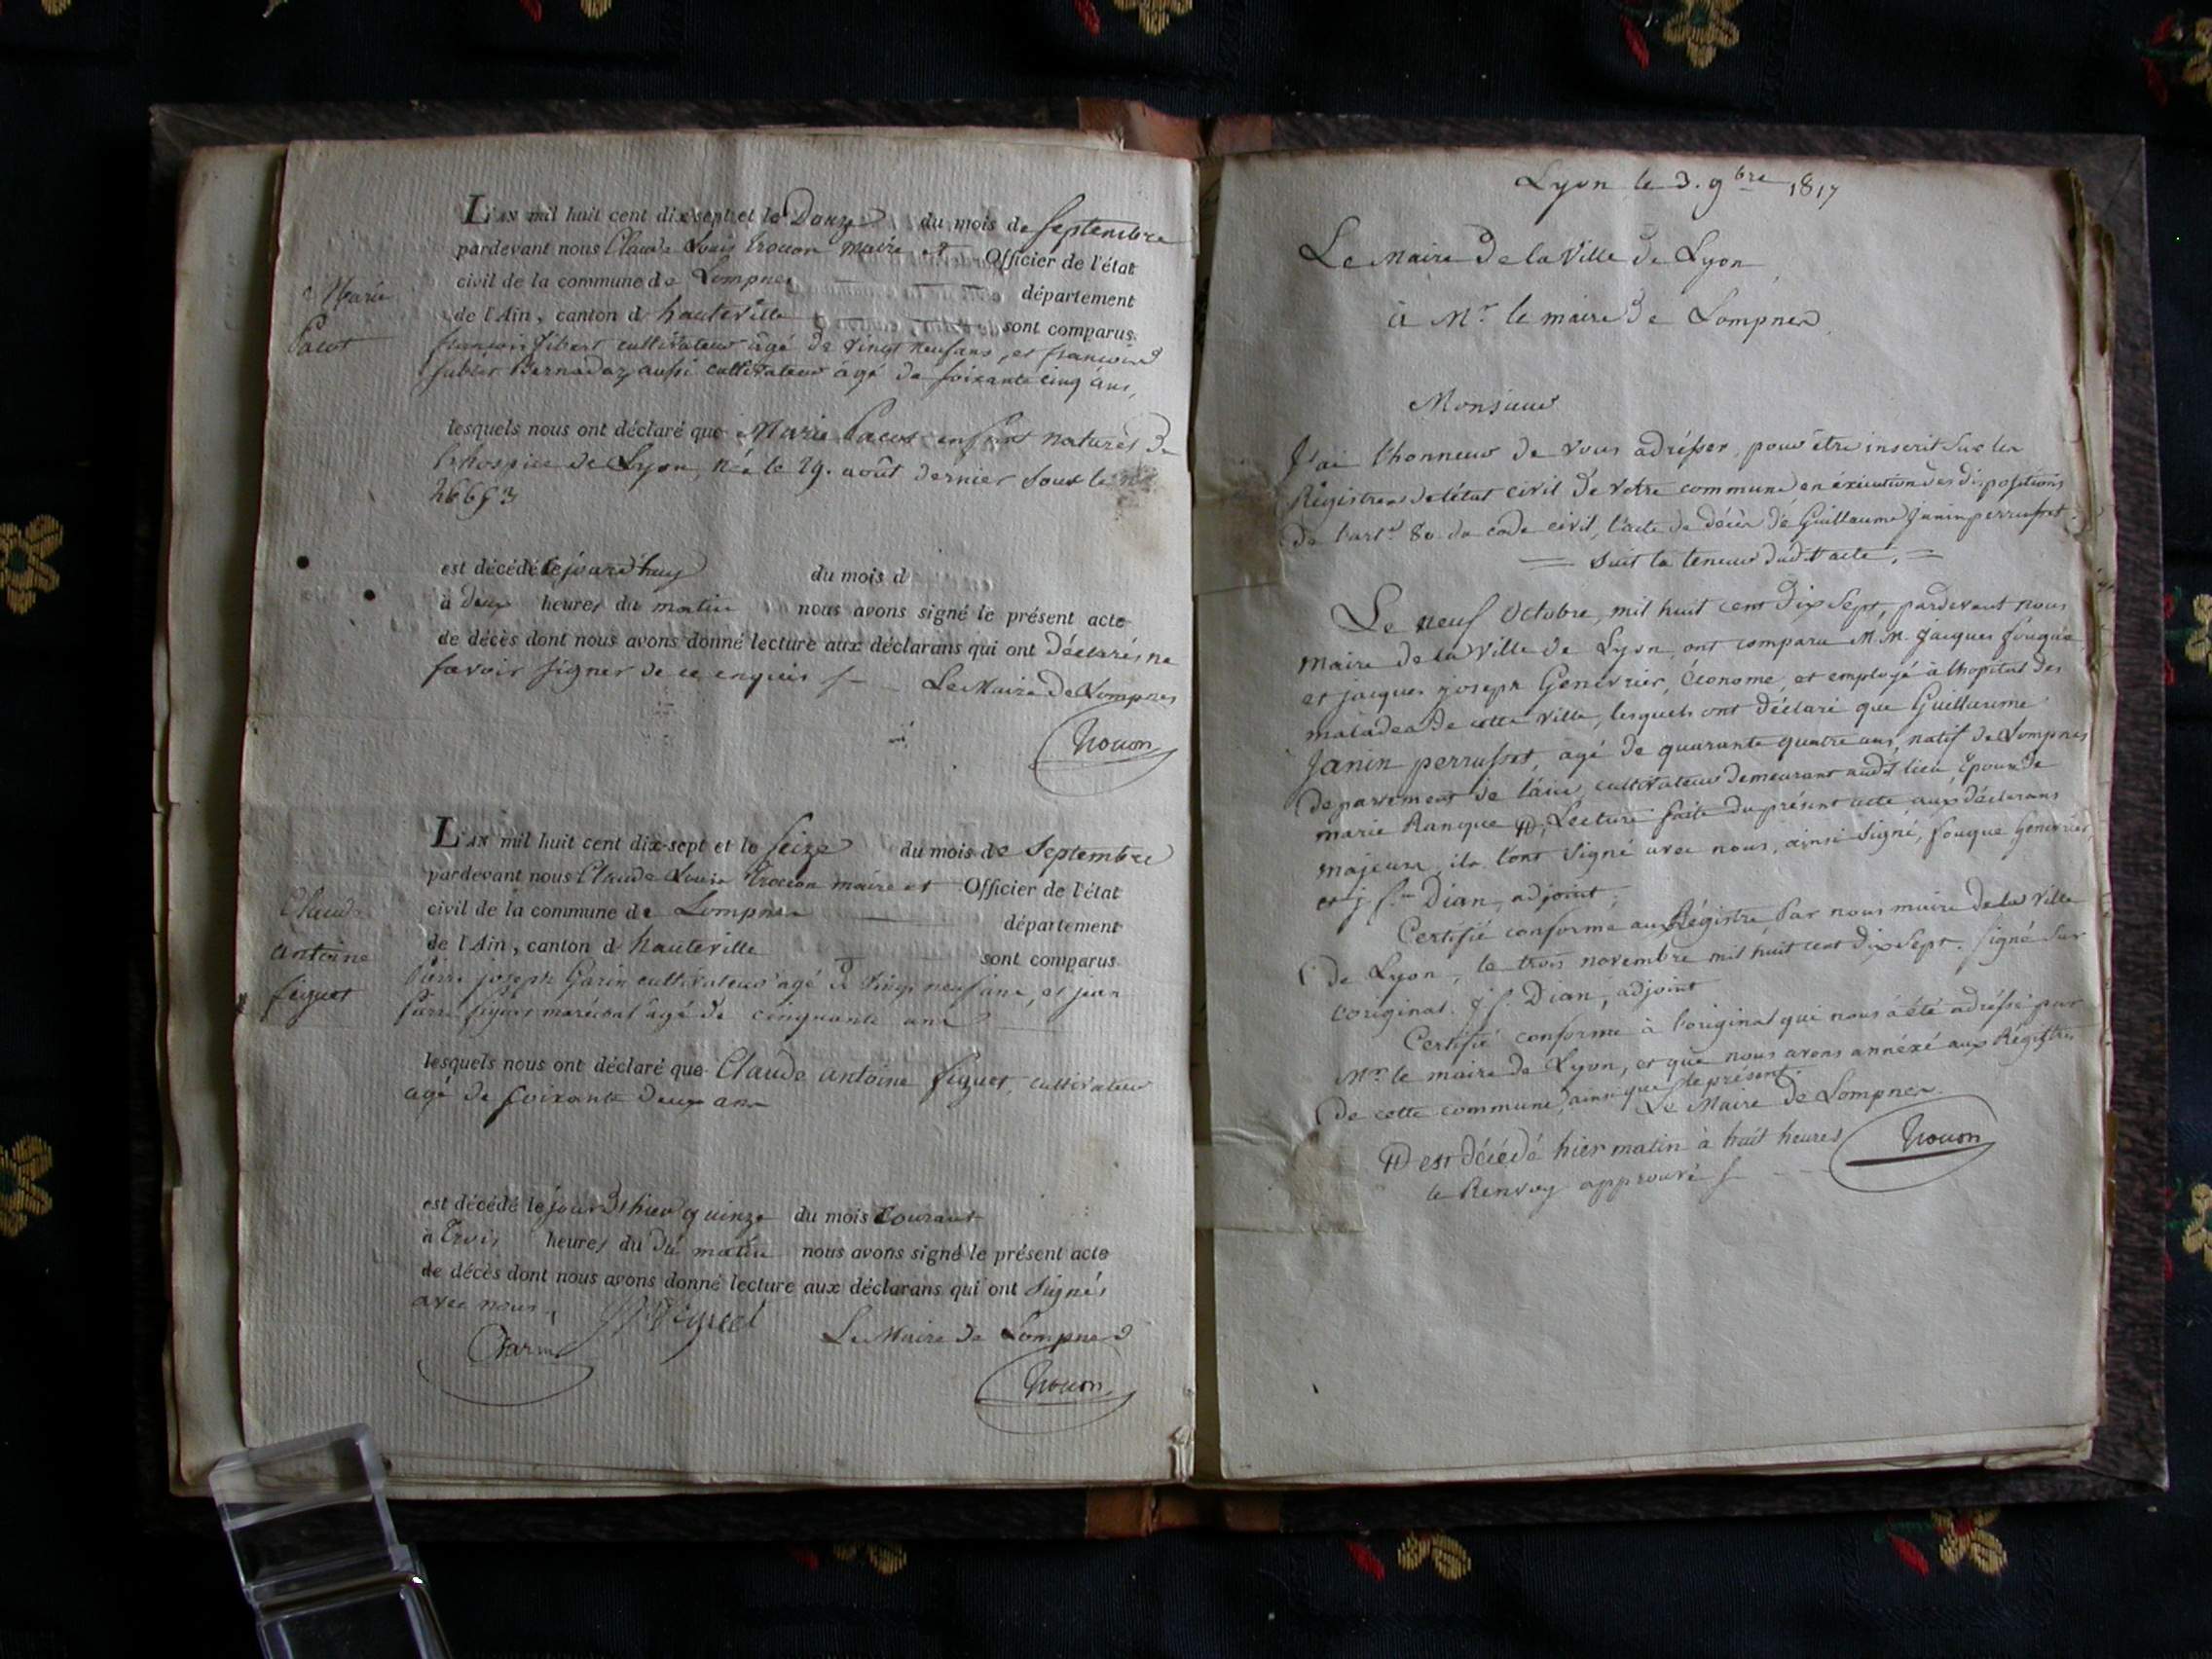 L'AN mil huit cent dix-sept et le Douze du mois de Septembre
pardevant nous Claude Louis Trocon maire et Officier de l'état
civil de la commune de Lompnes département
de l'Ain, canton d hauteville sont comparus
Marie
Pacot
françois filbert cultivateur âgé de vingt neuf ans, et françois
Bernadaz aussi cultivateur âgé de soixante cinq ans,
lesquels nous ont déclaré que Marie Pacot enfant naturès de
l'hospice de Lyon, née le 29. août dernier sous le n°
26693
est décédé cejourd'huy du mois d
à deux heures du matin nous avons signé le présent acte
de décès dont nous avons donné lecture aux déclarans qui ont déclarés ne
savoir signer de ce enquis Le Maire de Lompnes
Trocon
L'AN mil huit cent dix-sept et le Seize du mois de Septembre
pardevant nous Claude Louis Trocon maire et Officier de l'état
civil de la commune de Lompnes département
de l'Ain, canton d hauteville sont comparus
Claude
antoine
figuet
Pierre joseph Garin cultivateur âgé de vingt neuf ans, et jean
Pierre figuet maréchal âgé de cinquante ans
lesquels nous ont déclaré que Claude antoine figuet, cultivateur
agé de soixante deux ans
est décédé le jour d'hier quinze du mois Courant
à Trois heures du du matin nous avons signé le présent acte
de décès dont nous avons donné lecture aux déclarans qui ont signés
avec nous.
Garin figuet Le Maire de Lompnes
Trocon
Lyon le 3. 9bre 1817
Le Maire de la Ville de Lyon
à Mr le maire de Lompnes.
Monsieur
J'ai l'honneur de vous adrésser, pour être inscrit sur les
Régistres de l'état civil de votre commune en éxécution des dispositions
de l'art. 80 du code civil, l'acte de décès de Guillaume Janin perrusset.
Suit la teneur dudit acte.
Le neuf Octobre, mil huit cent dix Sept, pardevant nous
maire de la ville de Lyon, ont comparu M.M. jacques fouque
et jacques joseph Genevrier, économe, et employé à l'hopital des
malades de cette ville, lesquels ont déclaré que Guillaume
Janin perrusset, agé de quarante quatre ans, natif de Lompnes
département de l'ain, cultivateur demeurant audit lieu, époux de
marie Ranque #, Lecture faite du présent acte aux déclarans
majeurs, ils l'ont signé avec nous, ainsi signé, fouque Genevrier
et j. f. Dian, adjoint,
Certifié conforme aux Régistre, Par nous maire de la ville
de Lyon, le trois novembre mil huit cent dix Sept. signé sur
l'original. j. f. Dian, adjoint
Certifié conforme à l'original qui nous à été adréssé par
Mr le maire de Lyon, et que nous avons annéxé aux Régistres
de cette commune, ainsi que le présent.
Le Maire de Lompnes.
# est décédé hier matin à huit heures
Trocon
le Renvoy approuvé